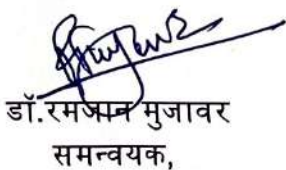 डॉ.रमजान मुजावर
समन्वयक,